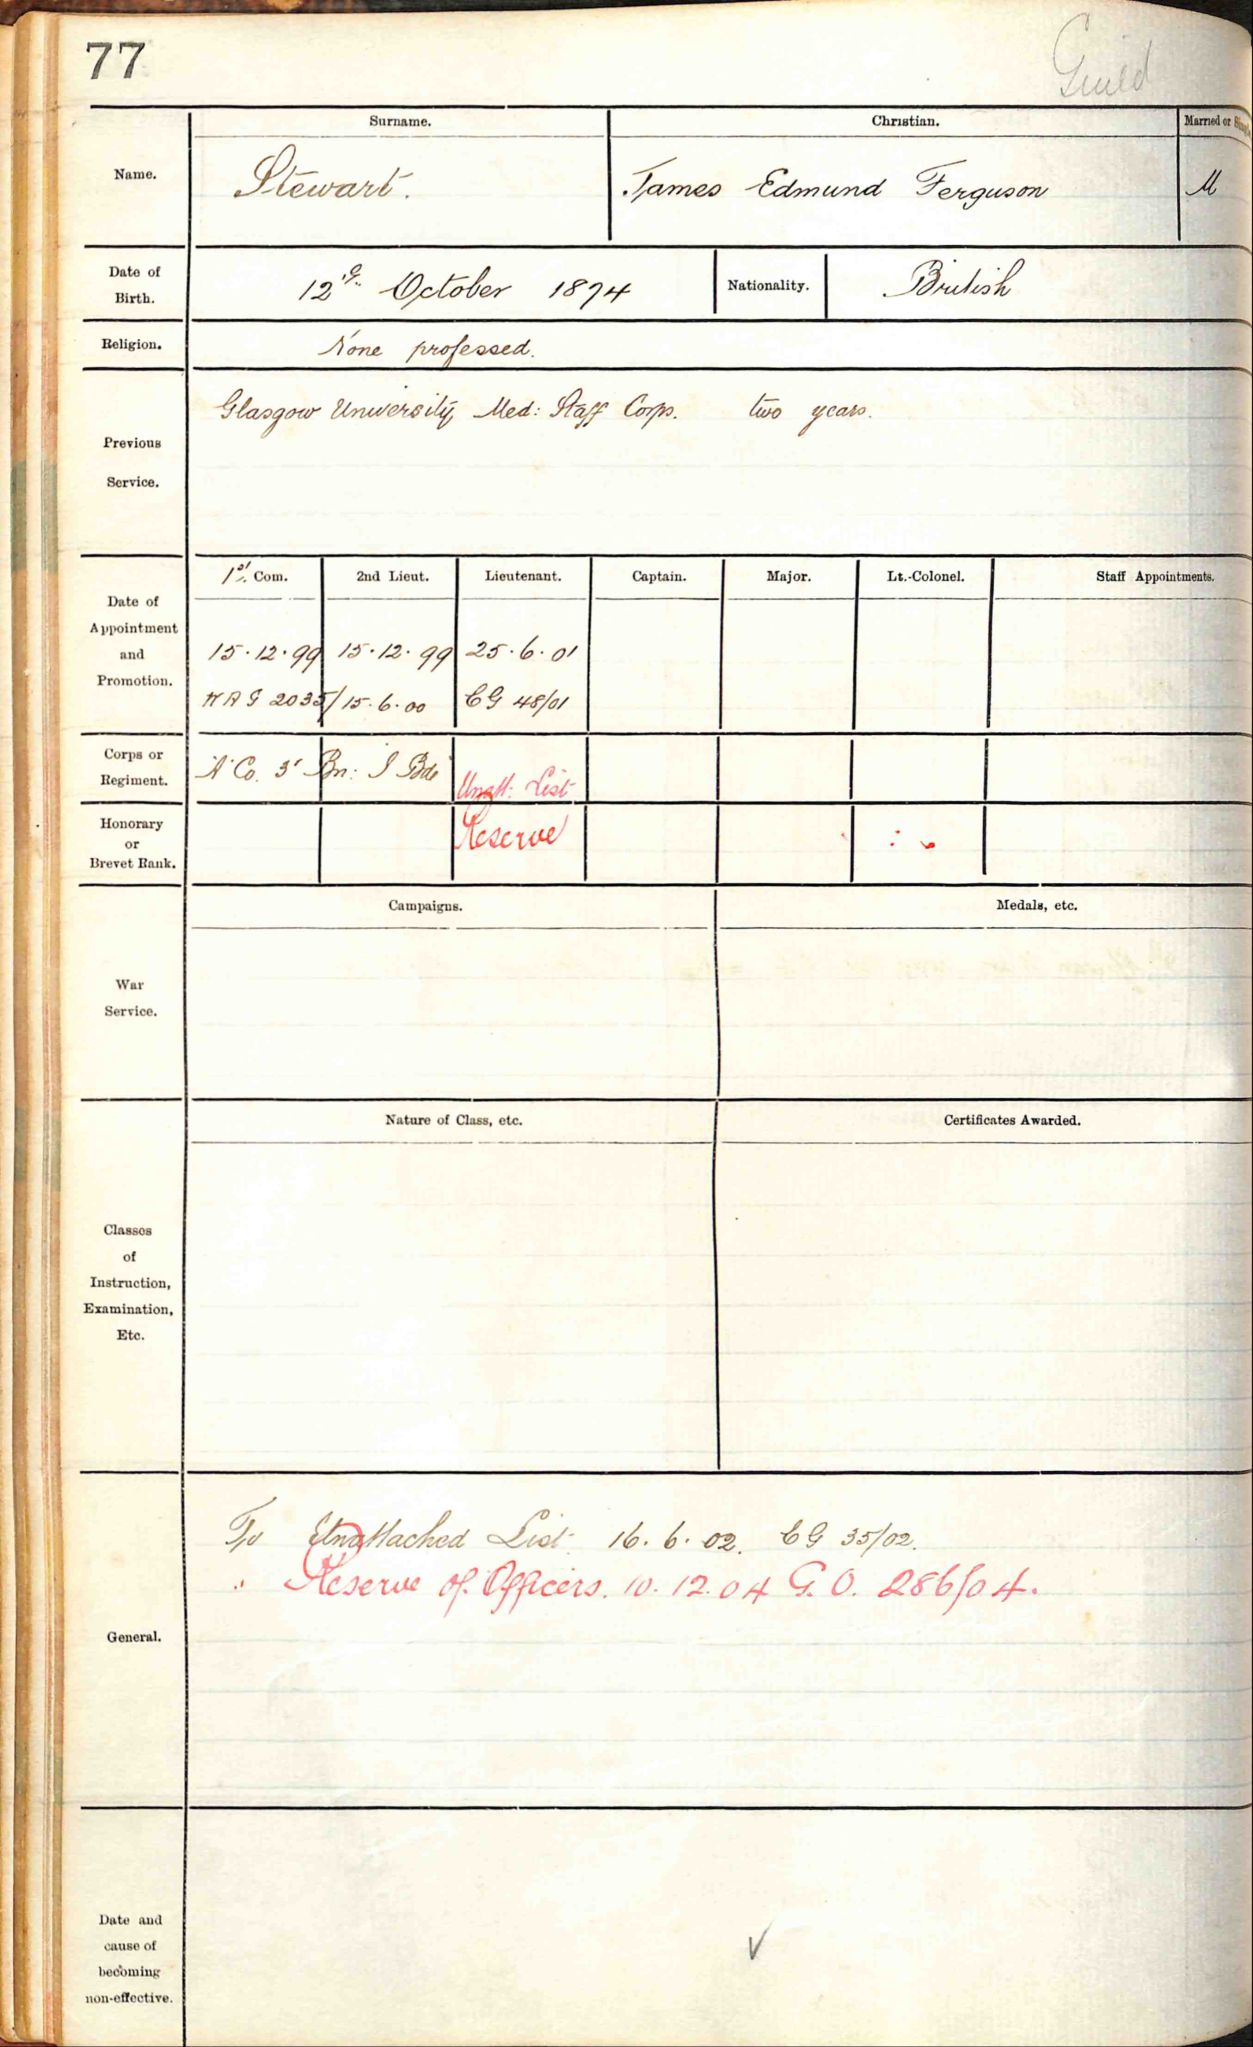 77
Guild
Surname. Christian. Married or Single
Name. Stewart. James Edmund Ferguson M
Date of Birth. 12th October 1874 Nationality. British
Religion. None professed.
Glasgow University Med: Staff Corps. two years.
Previous
Service.
1st. Com. 2nd Lieut. Lieutenant. Captain. Major. Lt.-Colonel. Staff Appointments.
Date of
Appointment
and
Promotion.
15.12.99 15.12.99 25.6.01
2035/15.6.00 CG 48/01
Corps or
Regiment.
A Co. 3' Bn: I Bde Unatt: List
Honorary
or
Brevet Rank.
Reserve
Campaigns. Medals, etc.
War
Service.
Nature of Class, etc. Certificates Awarded.
Classes
of
Instruction,
Examination,
Etc.
To Unattached List. 16.6.02. CG 35/02.
" Reserve of Officers. 10.12.04 G.O. 286/04.
General.
Date and
cause of
becoming
non-effective.